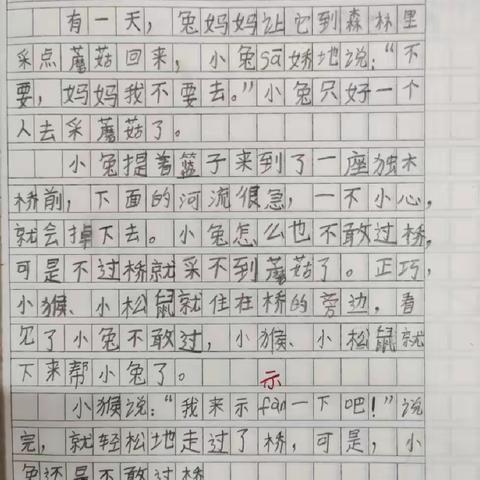 有一天，兔妈妈让它到森林里
采点蘑菇回来，小兔sā娇地说：“不
要，妈妈我不要去。”小兔只好一个
人去采蘑菇了。
小兔提着篮子来到了一座独木
桥前，下面的河流很急，一不小心，
就会掉下去。小兔怎么也不敢过桥，
可是不过桥就采不到蘑菇了。正巧，
小猴、小松鼠就住在桥的旁边，看
见了小兔不敢过，小猴、小松鼠就
下来帮小兔了。
示
小猴说：“我来示fàn一下吧！”说
完，就轻松地走过了桥，可是，小
兔还是不敢过桥